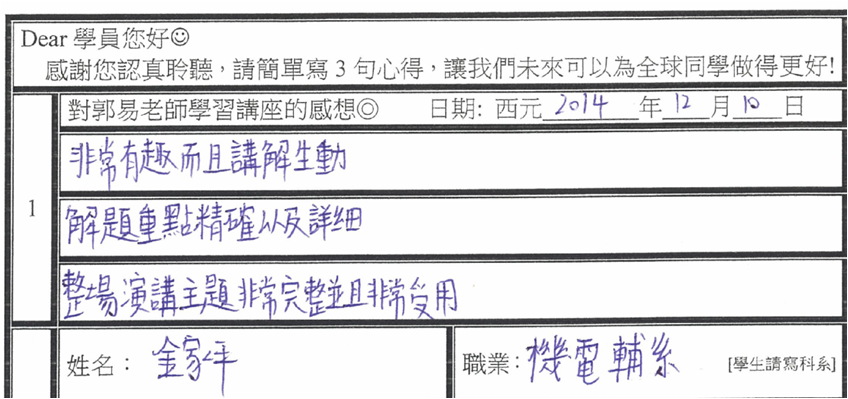 Dear 學員您好☺
感謝您認真聆聽，請簡單寫 3 句心得，讓我們未來可以為全球同學做得更好!
1
對郭易老師學習講座的感想◎ 日期: 西元 2014 年 12 月 10 日
非常有趣而且講解生動
解題重點精確以及詳細
整場演講主題非常完整並且非常受用
姓名： 金家 職業： 機電輔系 [學生請寫科系]